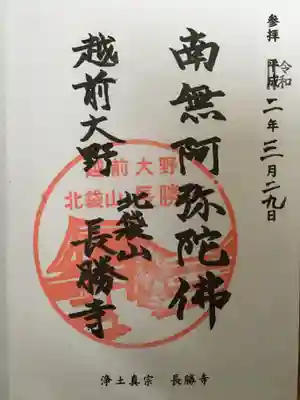 参拝 平成 令和 二年三月二九日
南無阿弥陀佛
北袋山
越前大野 長勝寺
越前大野
北袋山長勝寺
浄土真宗 長勝寺